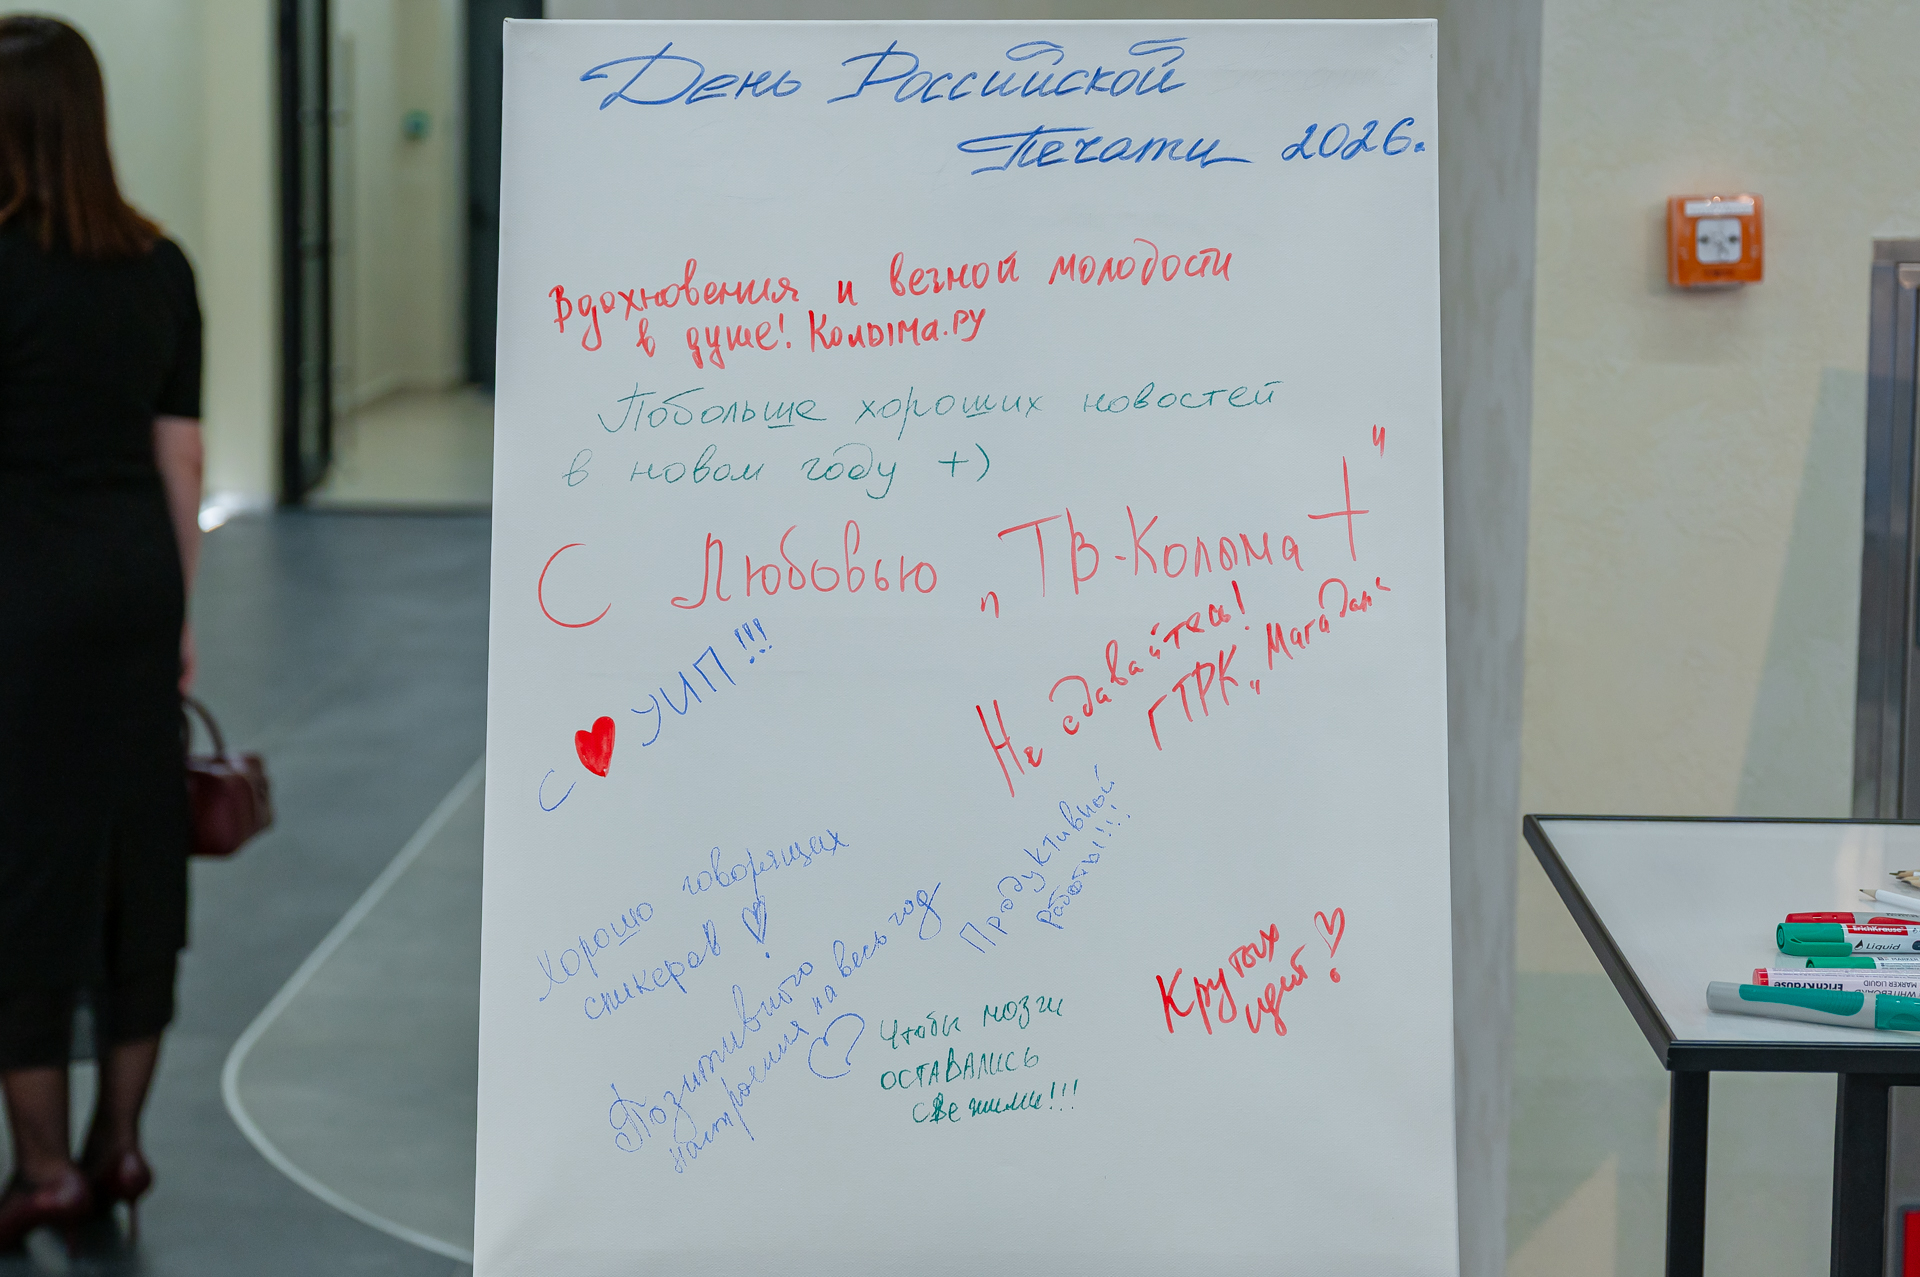 День Российской
Печати 2026.
Вдохновения и вечной молодости
в душе! Колыма.ру
Побольше хороших новостей
в новом году +)
С Любовью "ТВ-Колыма+"
С ❤ УИП!!!
Не сдавайтесь!
ГТРК „Магадан“
Продуктивной
работы!!!!
Хорошо говорящах
спикеров ♡!
Позитивного
настроения на весь год
♡
Чтобы мозги
ОСТАВАЛИСЬ
свежими!!!
Крутых
идей ♡!
ErichKrause
Liquid
ErichKrause
WHITEBOARD
MARKER LIQUID